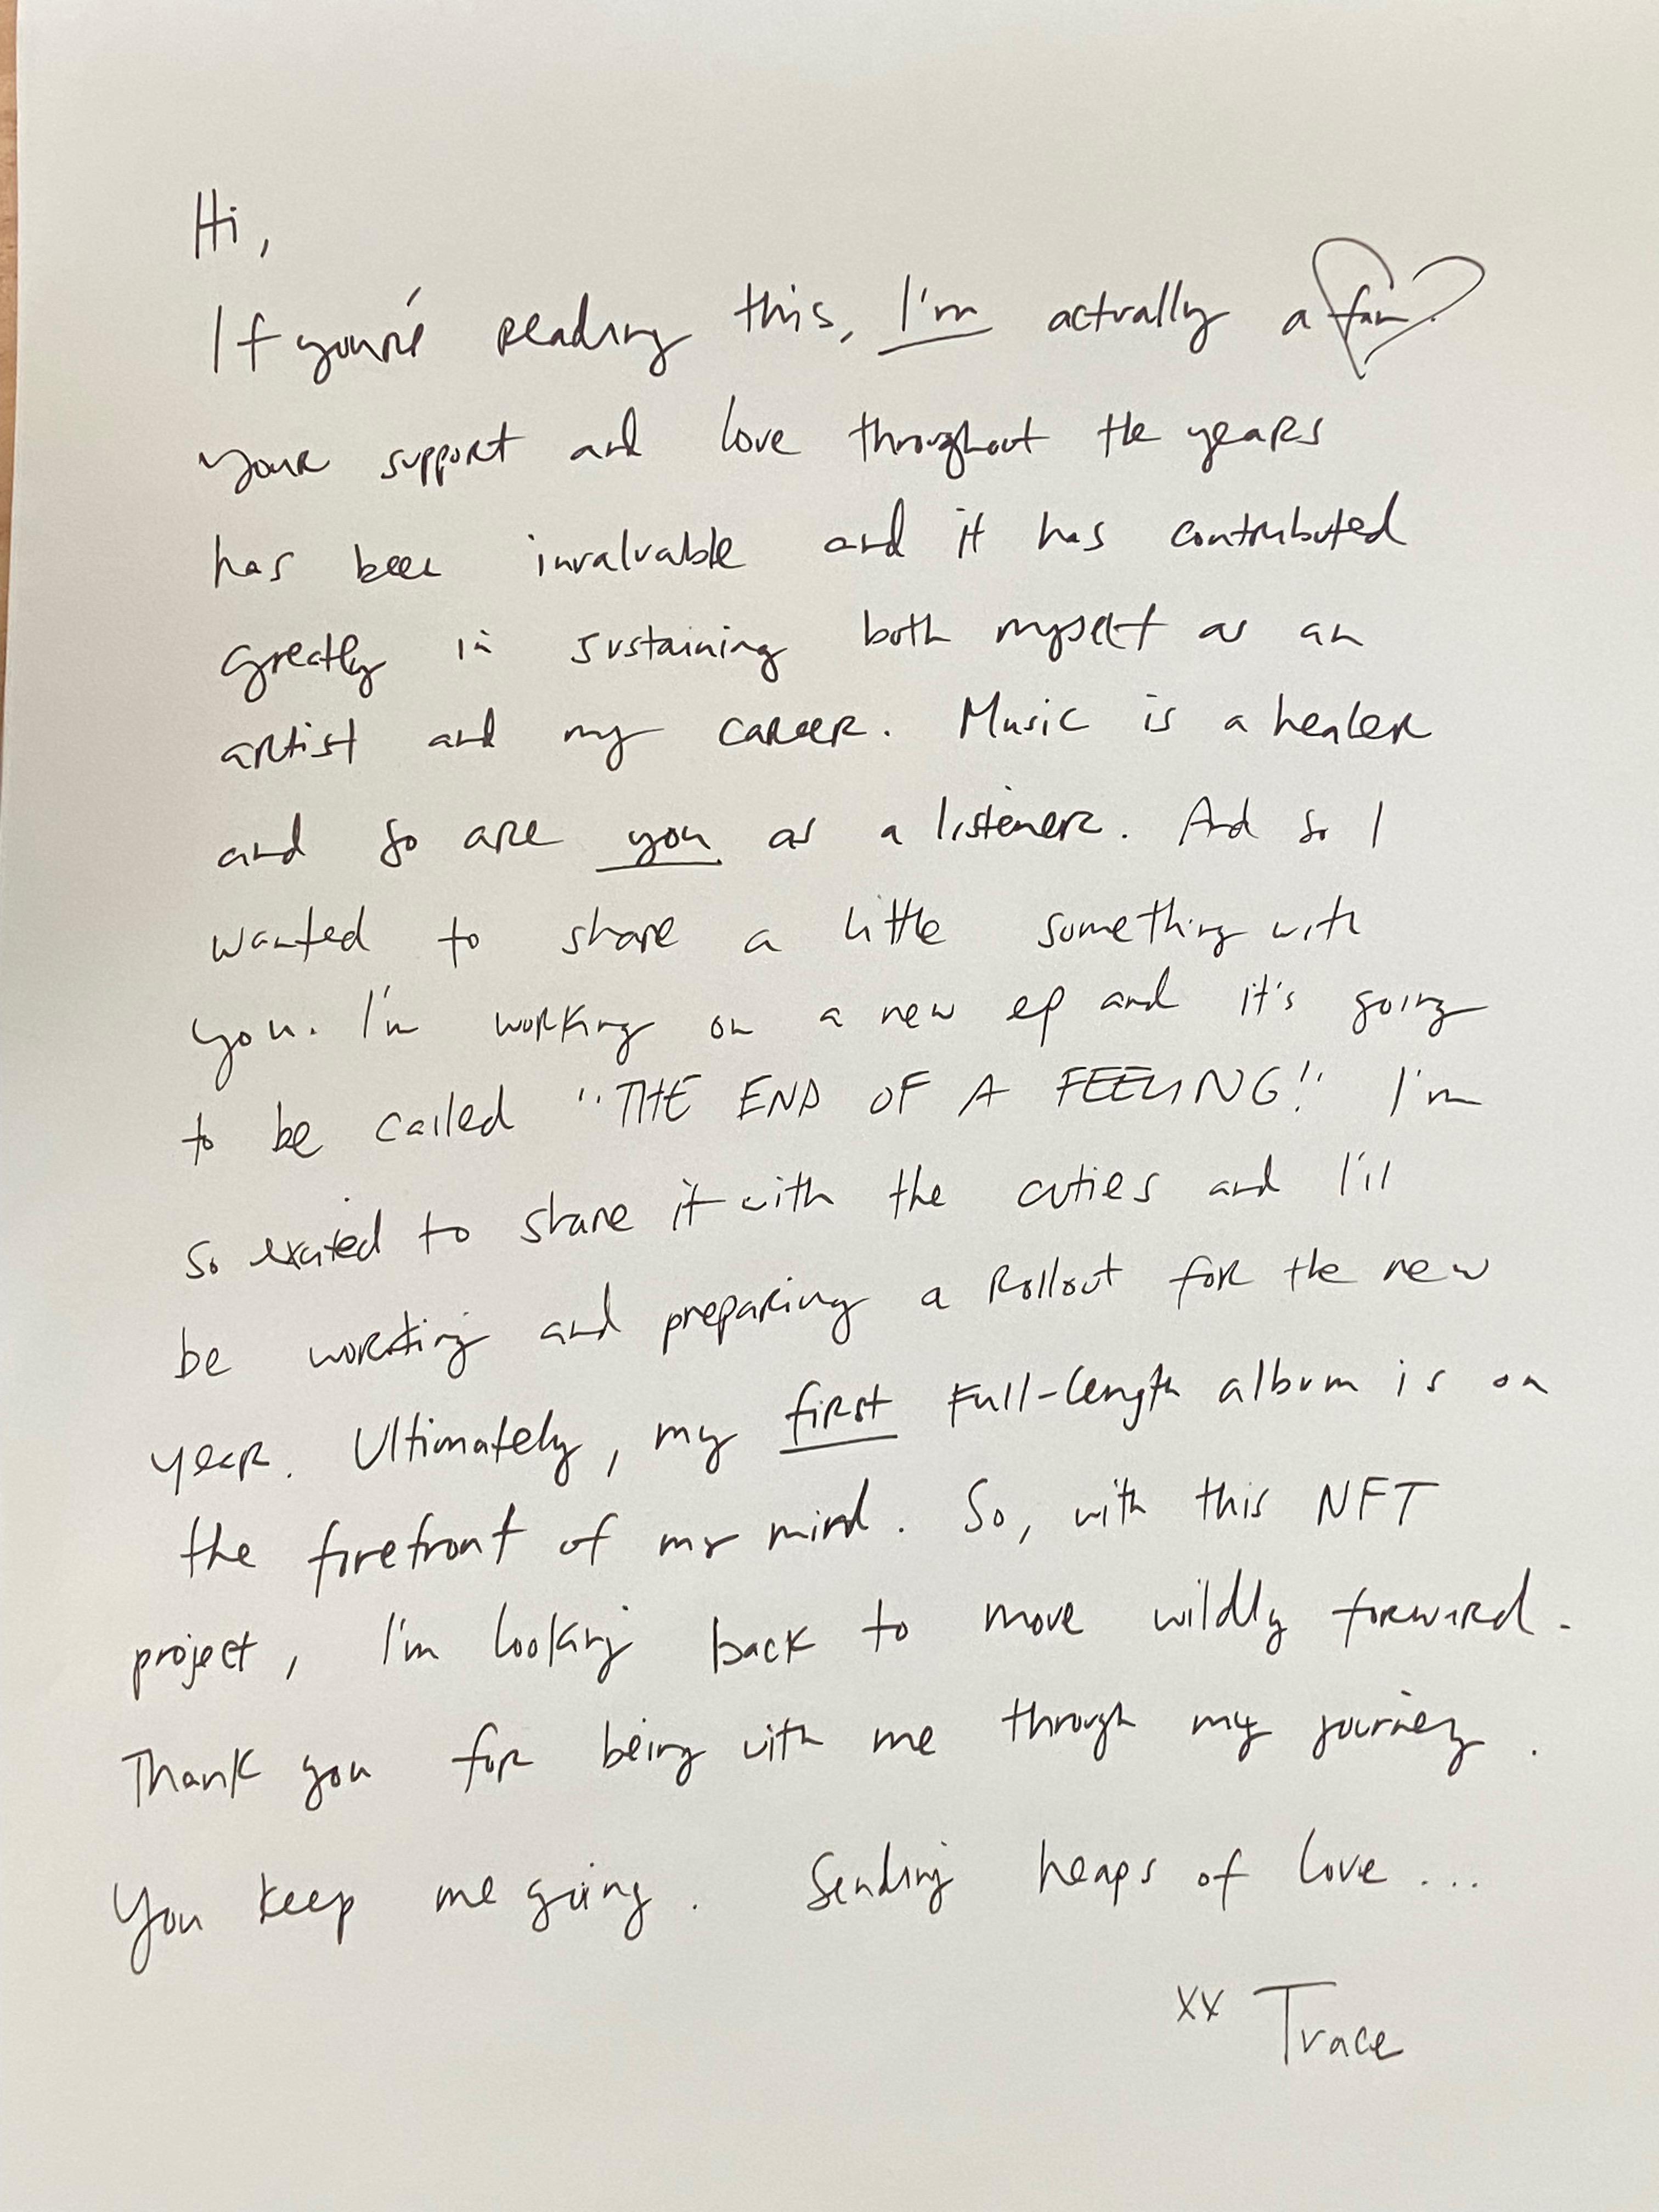 Hi,
If you're reading this, I'm actually a fan.
Your support and love throughout the years
has been invaluable and it has contributed
greatly in sustaining both myself as an
artist and my career. Music is a healer
and so are you as a listener. And so I
wanted to share a little something with
you. I'm working on a new ep and it's going
to be called "THE END OF A FEELING!" I'm
so excited to share it with the cuties and I'll
be working and preparing a rollout for the new
year. Ultimately, my first full-length album is on
the forefront of my mind. So, with this NFT
project, I'm looking back to move wildly forward.
Thank you for being with me through my journey.
You keep me going. Sending heaps of love...
xx Trace